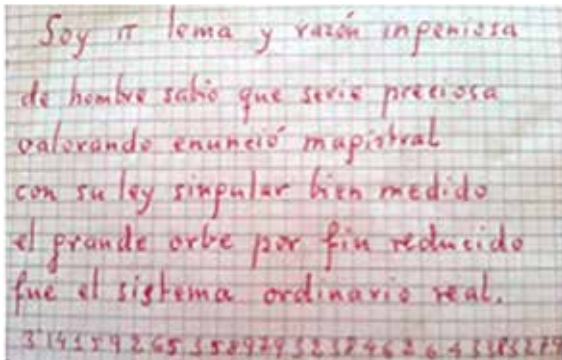 Soy π lema y razón ingeniosa
de hombre sabio que serie preciosa
valorando enunció magistral
con su ley singular bien medido
el grande orbe por fin reducido
fue el sistema ordinario real.